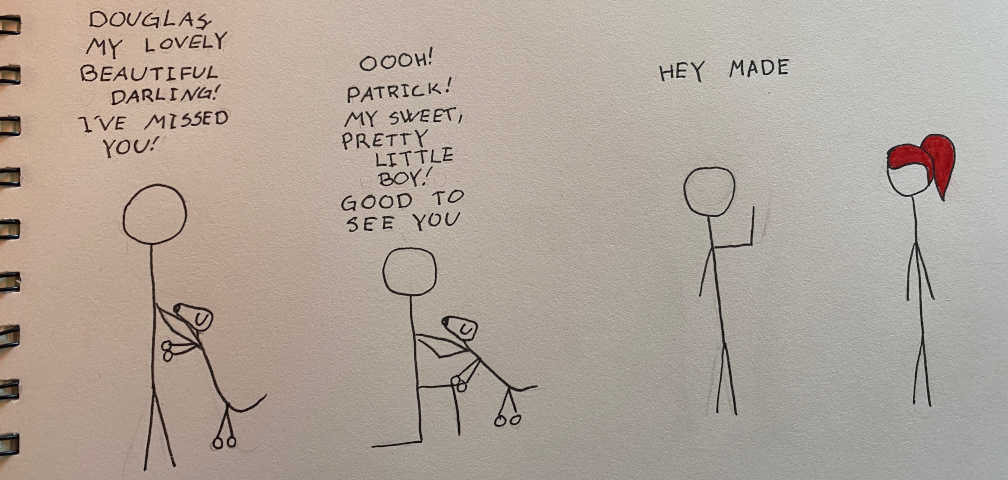 DOUGLAS
MY LOVELY
BEAUTIFUL
DARLING!
I'VE MISSED
YOU!
OOOH!
PATRICK!
MY SWEET,
PRETTY
LITTLE
BOY!
GOOD TO
SEE YOU
HEY MADE